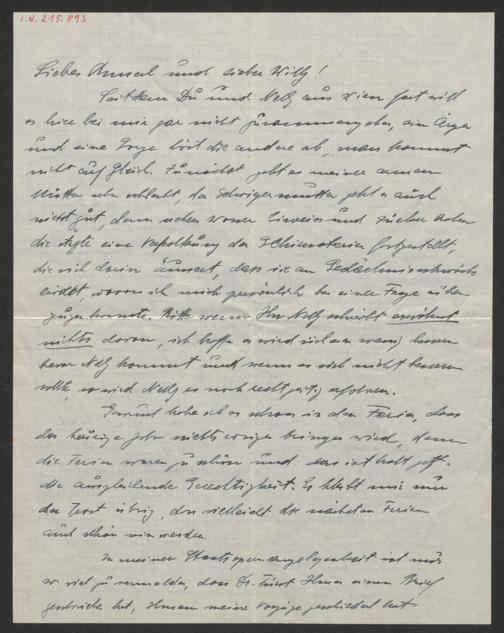 I.N. 215.893
Liebes Annerl und lieber Willy!
Seitdem Du und Nelly aus Wien fort will
es hier bei mir gar nicht zusammengehen, ein Ärger
und eine Sorge löst die andere ab, man kommt
nicht auf Gleich. Zunächst geht es meiner armen
Mutter sehr schlecht, der Schwiegermutter geht es auch
nicht gut, denn neben Eiweiss und Zucker haben
die Ärzte eine Verkalkung der Gehirnarterien festgestellt,
die sich darin äussert, dass sie an Gedächtnisschwäche
leidet, wovon ich mich persönlich bei einer Frage
überzeugen konnte. Bitte wenn Ihr Nelly schreibt erwähnt
nichts davon, ich hoffe es wird sich ein wenig bessern
bevor Nelly kommt und wenn es sich nicht bessern
sollte, so wird Nelly es noch rechtzeitig erfahren.
Gewusst habe ich es schon in den Ferien, dass
das heurige Jahr nichts bringen wird, denn
die Ferien waren zu schön und das ist halt
die ausgleichende Gerechtigkeit. Es bleibt mir nur
der Trost übrig, dass vielleicht die nächsten Ferien
auch schön sein werden.
In meiner Staatsopernangelegenheit ist nur
so viel zu vermelden, dass Dr. Ihnen einen Brief
geschrieben hat, Ihnen meine Vorzüge geschildert hat